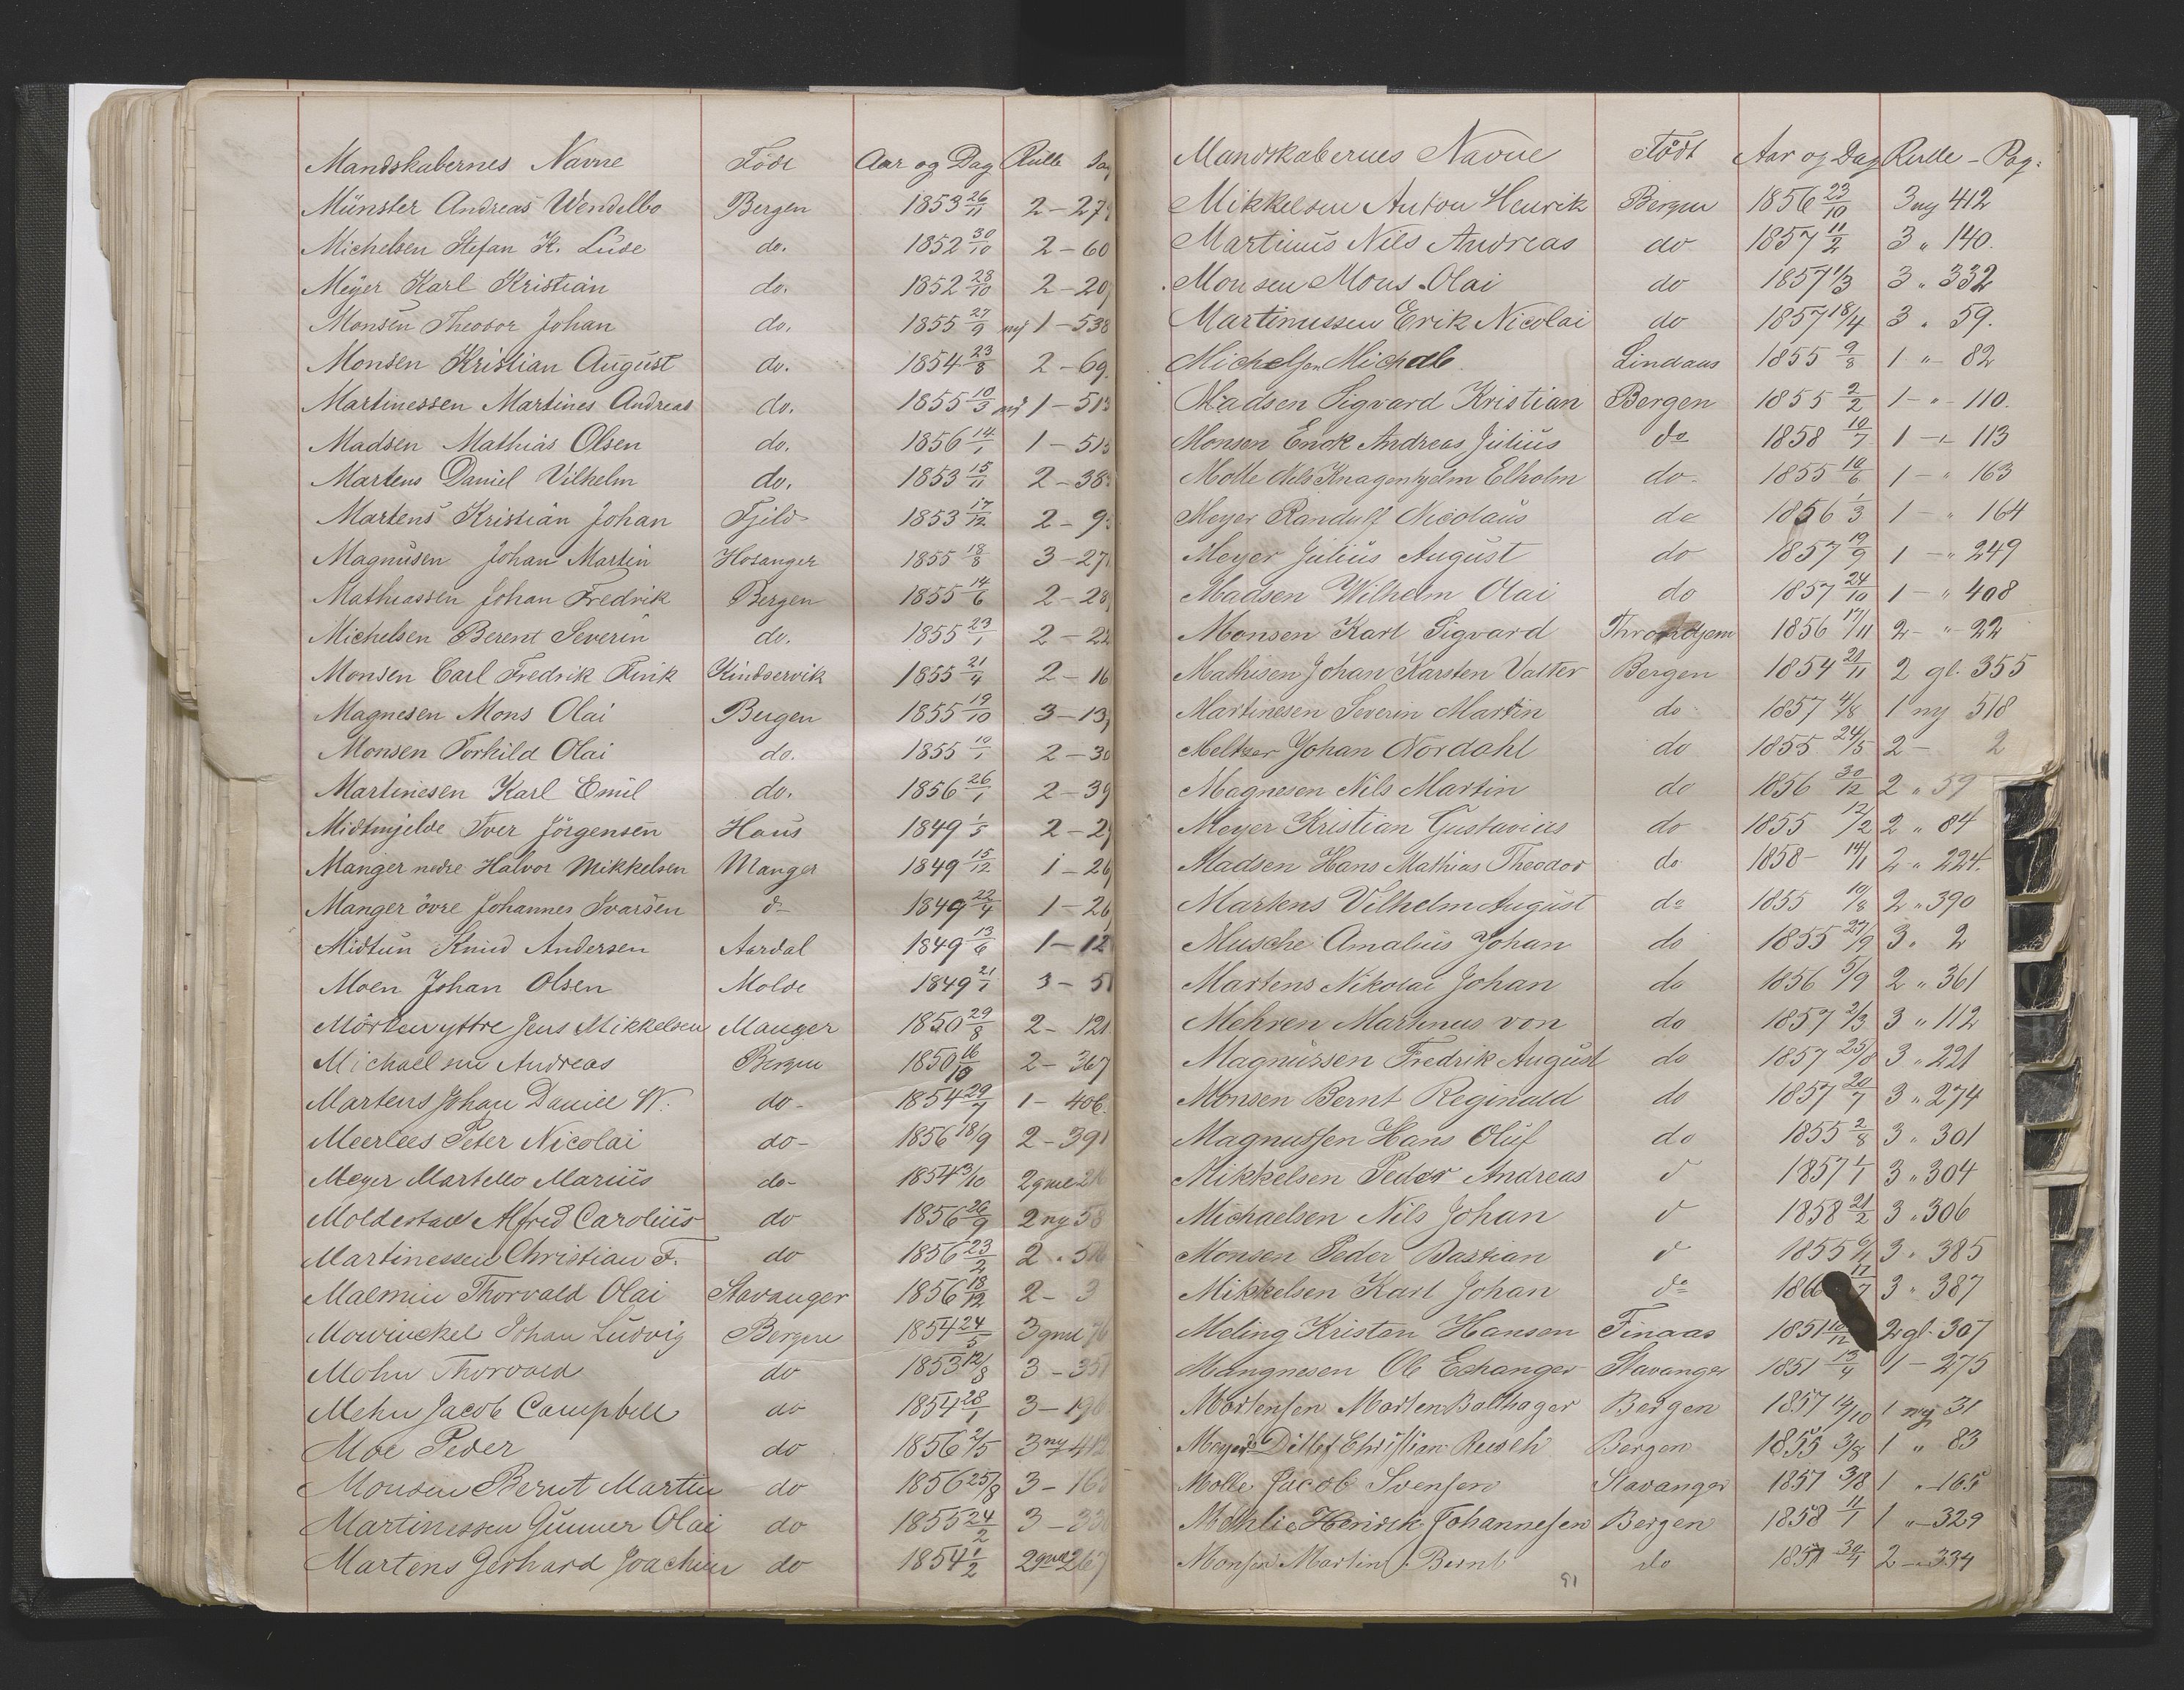 Mandskabernes Navne Födt Aar og Dag Rulle Pag
Münster Andreas Wendelbo Bergen 1853 26/11 2-27
Michelsen Stefan K. Lude do. 1852 30/10 2-60
Meyer Karl Kristian do. 1852 28/10 2-20
Monsen Theodor Johan do. 1855 27/9 ny 1-538
Monsen Kristian August do. 1854 23/8 2-69
Martinessen Martines Andreas do. 1855 10/3 ny 1-513
Madsen Mathias Olsen do. 1856 14/1 1-513
Martens Daniel Vilhelm do. 1853 15/11 2-38
Martens Kristian Johan Fjeld 1853 17/12 2-9
Magnusen Johan Martin Hosanger 1855 18/8 3-27
Mathiassen Johan Fredrik Bergen 1855 14/6 2-28
Michelsen Berent Severin do. 1855 23/1 2-22
Monsen Carl Fredrik Fink Kindservik 1855 21/4 2-16
Magnesen Mons Olai Bergen 1855 19/10 3-13
Monsen Torkild Olai do. 1855 10/1 2-30
Martinesen Karl Emil do. 1856 26/1 2-39
Midtmjelde Iver Jörgensen Haus 1849 1/5 2-2
Manger nedre Halvor Mikkelsen Manger 1849 15/12 1-26
Manger övre Johannes Ivarsen d- 1849 22/4 1-26
Midtun Knud Andersen Aardal 1849 13/6 1-12
Moen Johan Olsen Molde 1849 21/1 3-51
Mörken yttre Jens Mikkelsen Manger 1850 29/8 2-121
Michaelsen Andreas Bergen 1850 16/10 2-367
Martens Johan Daniel W. do- 1854 29/7 1-406
Meerlees Peter Nicolai do- 1856 18/9 2-391
Meyer Martello Marius do- 1854 3/10 2
Moldestad Alfred Carolius do 1856 26/9 2 ny 58
Martinessen Christian F. do 1856 23/2 2
Malmin Thorvald Olai Stavanger 1856 18/12 2-3
Mowinckel Johan Ludvig Bergen 1854 24/5 3 gml 76
Mohn Thorvald do 1853 12/8 3-351
Mehn Jacob Campbell do 1854 28/1 3-196
Moe Peder do 1856 2/5 3 ny 412
Monsen Bernt Martin do 1856 25/8 3-16
Martinessen Gunner Olai do 1855 24/2 3-33
Martens Gerhard Joachim do 1854 1/2 2 gml 267
Mandskabernes Navne Födt Aar og Dag Rulle - Pag:
Mikkelsen Anton Henrik Bergen 1856 23/10 3 ny 412
Martinus Nils Andreas do 1857 11/2 3 " 140.
Monsen Mons Olai do 1857 11/3 3 " 332
Martinussen Erik Nicolai do 1857 18/4 3 " 59.
Michelsen Michael Lindaas 1855 9/8 1 " 82
Madsen Sigvard Kristian Bergen 1855 2/2 1-"-110.
Monsen Enok Andreas Julius do 1858 10/7 1-"-113
Molte Nils Knagenhjelm Elholm do- 1855 10/6 1-" 163
Meyer Randulf Nicolaus do 1856 1/3 1-" 164
Meyer Julius August do 1857 19/9 1-" 249
Madsen Wilhelm Olai do 1857 24/10 1-" 408
Monsen Karl Sigvard Throndjem 1856 17/11 2-"-22
Mathisen Johan Karsten Valter Bergen 1854 21/11 2 gl. 355
Martinesen Severin Martin do- 1857 4/8 1 ny 518
Meltzer Johan Nordahl do 1855 24/5 2- 2
Magnesen Nils Martin do 1856 30/12 2 " 59
Meyer Kristian Gustavius do 1855 12/2 2 " 84
Madsen Hans Mathias Theodor do 1858- 14/1 2 " 224.
Martens Vilhelm August do 1855 10/8 2 " 390
Musche Amalius Johan do 1855 27/9 3 " 2
Martens Nikolai Johan do 1856 5/9 2 " 361
Mehren Martinus von do 1857 2/3 3 " 112
Magnussen Fredrik August do 1857 25/8 3 " 221
Monsen Bernt Reginald do 1857 20/7 3 " 274
Magnussen Hans Oluf do 1855 2/8 3 " 301
Mikkelsen Peder Andreas d 1857 1/1 3 " 304
Michaelsen Nils Johan d 1858 21/2 3 " 306
Monsen Peder Bastian d 1855 6/1 3 " 385
Mikkelsen Karl Johan do 17/7 3 " 387
Meling Kristen Hansen Finaas 1851 10/12 2 gl. 307
Mangnesen Ole Exhanger Stavanger 1851 13/4 1-275
Mortensen Morten Balthager Bergen 1857 14/10 1 ny 31
Meyer Ditlef Christian Rusch Bergen 1855 3/8 1 " 83
Molle Jacob Svensen Stavanger 1857 3/8 1 "-165
Mæhlie Henrik Johannesen Bergen 1858 11/1 1 "-329
Monsen Martin J. Bernt do 1857 30/4 2-"334
91